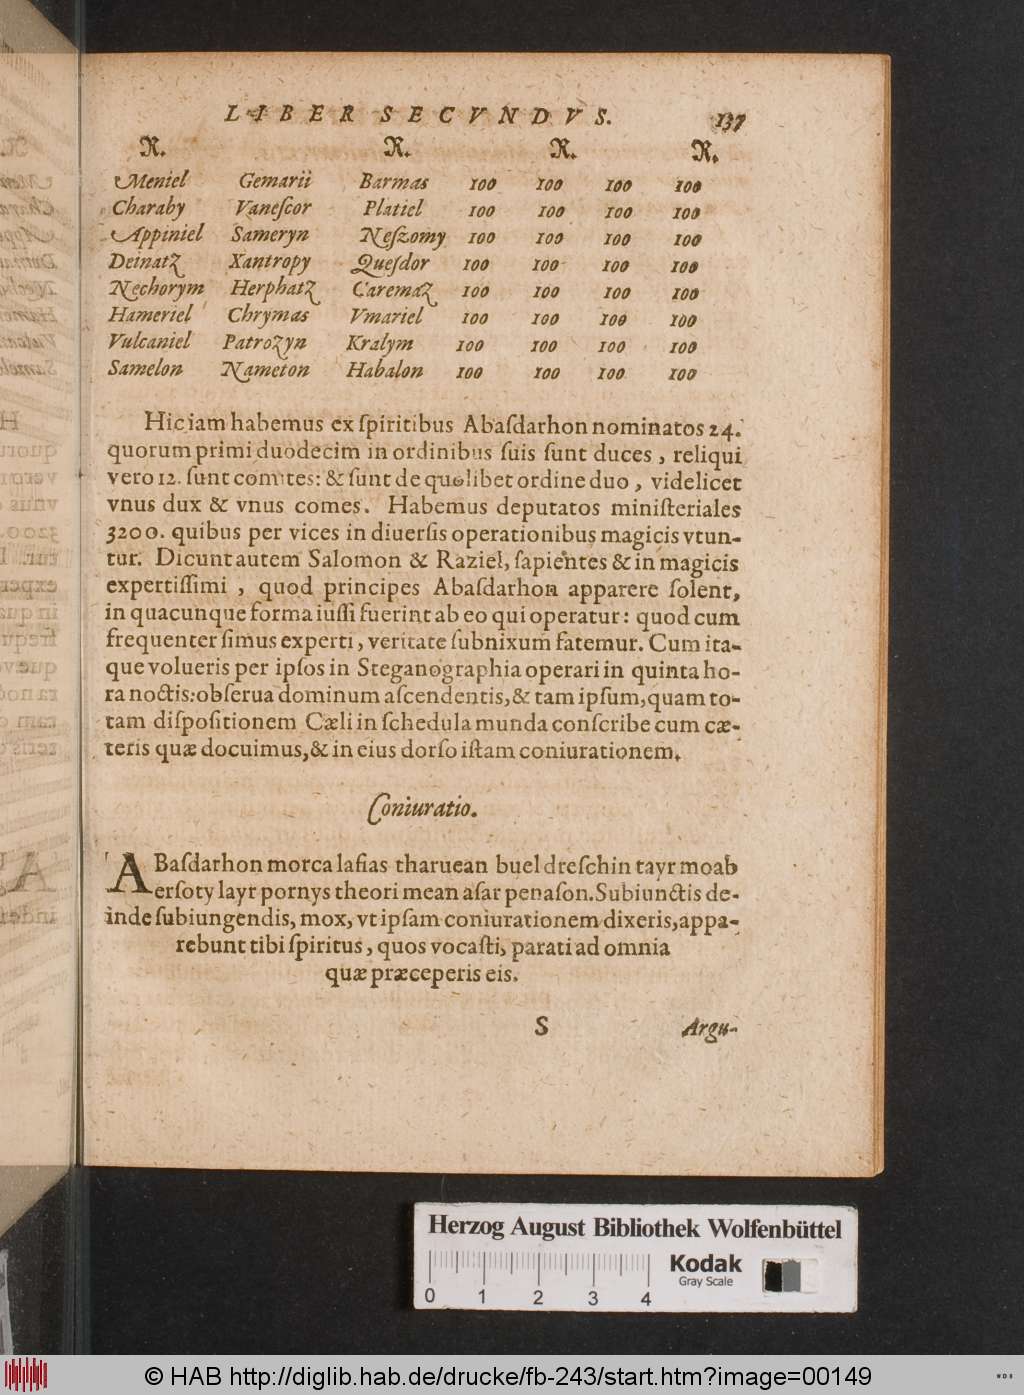 LIBER SECVNDVS. 137
R. R. R. R.
Meniel Gemarii Barmas 100 100 100 100
Charaby Vaneſcor Platiel 100 100 100 100
Appiniel Sameryn Neſzomy 100 100 100 100
Deinatz Xantropy Queſdor 100 100 100 100
Nechorym Herphatz Caremaz 100 100 100 100
Hameriel Chrymas Vmariel 100 100 100 100
Vulcaniel Patrozyn Kralym 100 100 100 100
Samelon Nameton Habalon 100 100 100 100
Hic iam habemus ex ſpiritibus Abaſdarhon nominatos 24.
quorum primi duodecim in ordinibus ſuis ſunt duces, reliqui
vero 12. ſunt comites: & ſunt de quolibet ordine duo, videlicet
vnus dux & vnus comes. Habemus deputatos miniſteriales
3200. quibus per vices in diuerſis operationibus magicis vtun-
tur. Dicunt autem Salomon & Raziel, ſapientes & in magicis
expertiſſimi, quod principes Abaſdarhon apparere ſolent,
in quacunque forma iuſſi fuerint ab eo qui operatur: quod cum
frequenter ſimus experti, veritate ſubnixum fatemur. Cum ita-
que volueris per ipſos in Steganographia operari in quinta ho-
ra noctis: obſerua dominum aſcendentis, & tam ipſum, quam to-
tam diſpoſitionem Cæli in ſchedula munda conſcribe cum cæ-
teris quæ docuimus, & in eius dorſo iſtam coniurationem.
Coniuratio.
ABaſdarhon morca laſias tharuean buel dreſchin tayr moab
erſoty layr pornys theori mean aſar penaſon. Subiunctis de-
inde ſubiungendis, mox, vt ipſam coniurationem dixeris, appa-
rebunt tibi ſpiritus, quos vocaſti, parati ad omnia
quæ præceperis eis.
S Argu-
Herzog August Bibliothek Wolfenbüttel
Kodak
Gray Scale
0 1 2 3 4
© HAB http://diglib.hab.de/drucke/fb-243/start.htm?image=00149